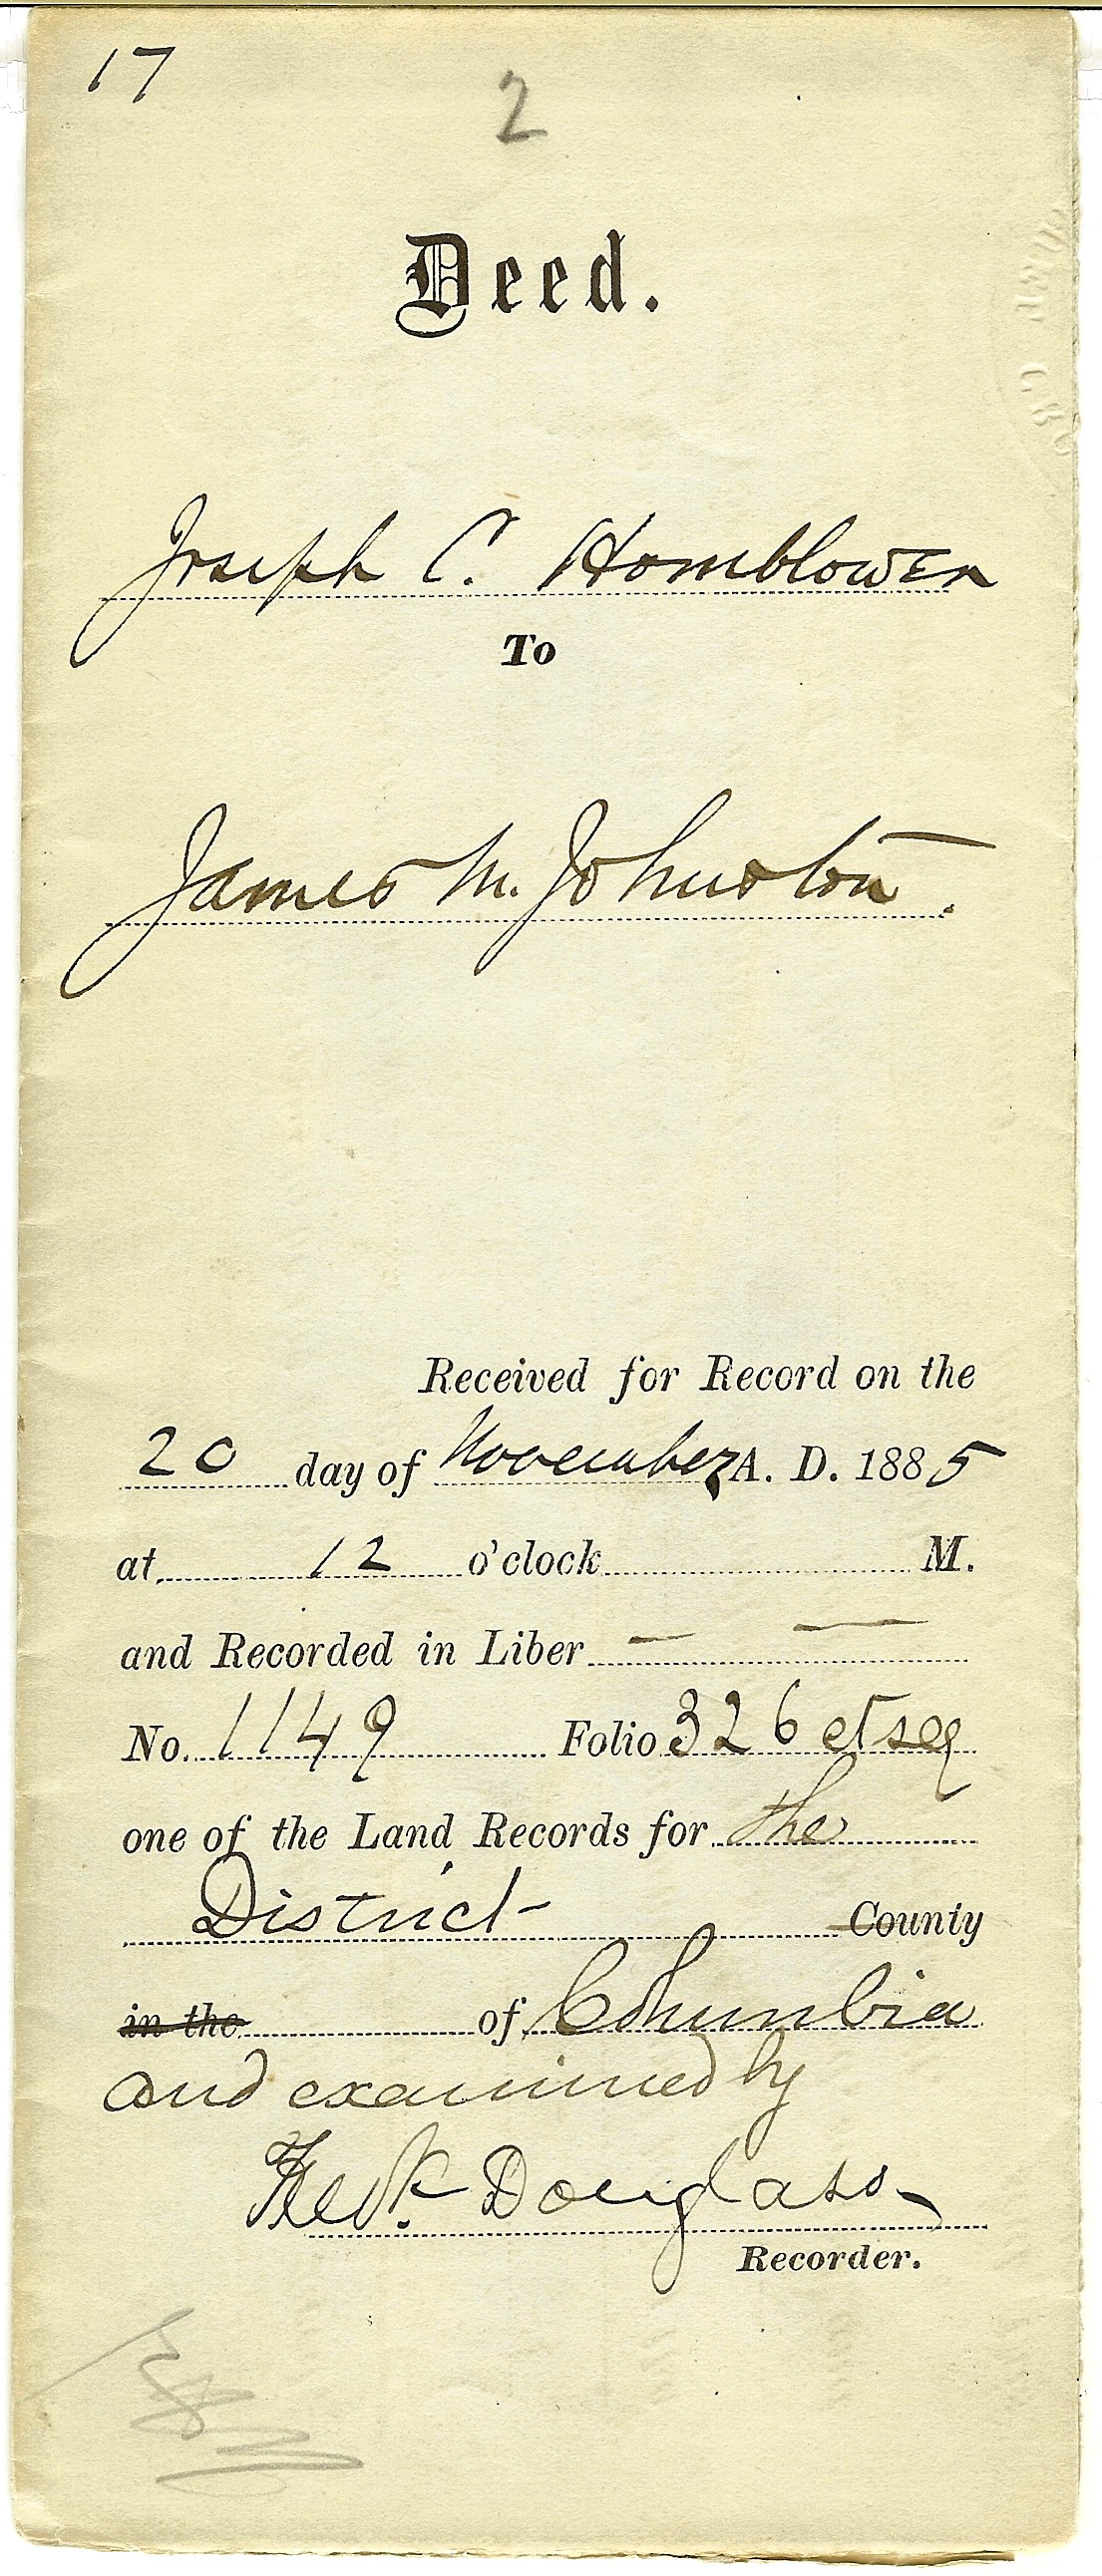 17
2
Deed.
Joseph C. Hornblower
To
James M. Johnston.
Received for Record on the
20 day of November A. D. 1885
at 12 o'clock M.
and Recorded in Liber — —
No. 1149 Folio 326 et seq
one of the Land Records for the
District County
in the of Columbia
and examined by
Fredk. Douglass
Recorder.